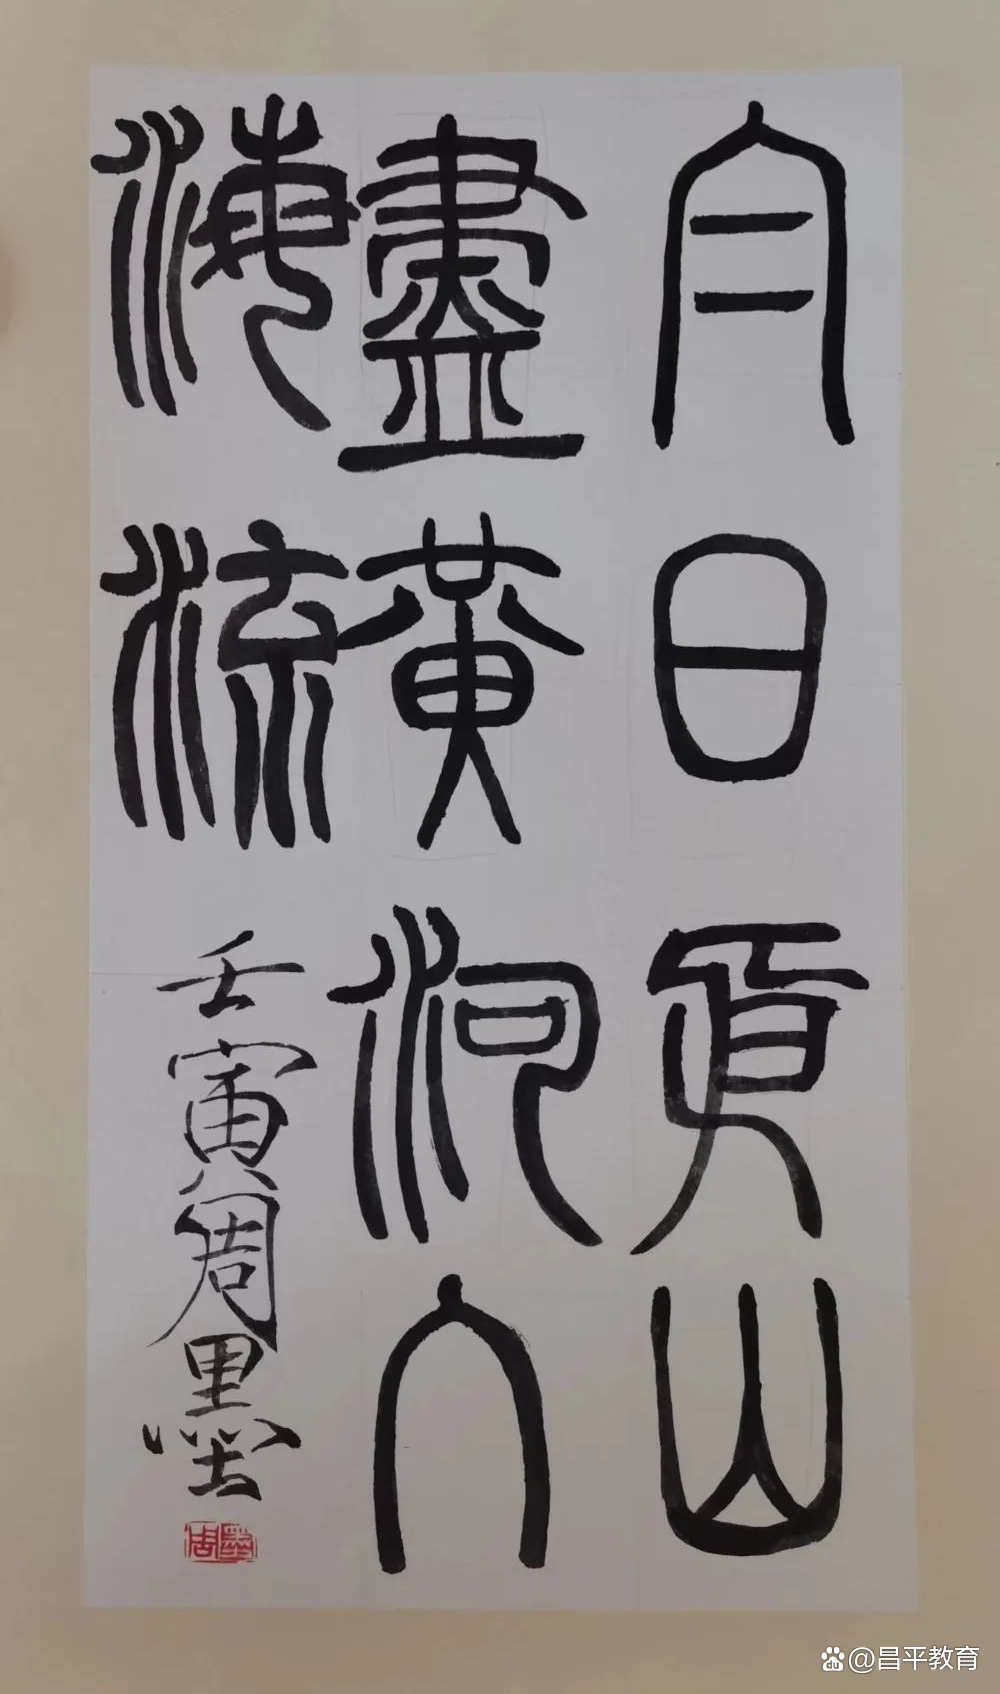 白日依山
盡黃河入
海流
壬寅周墨
周墨
@昌平教育